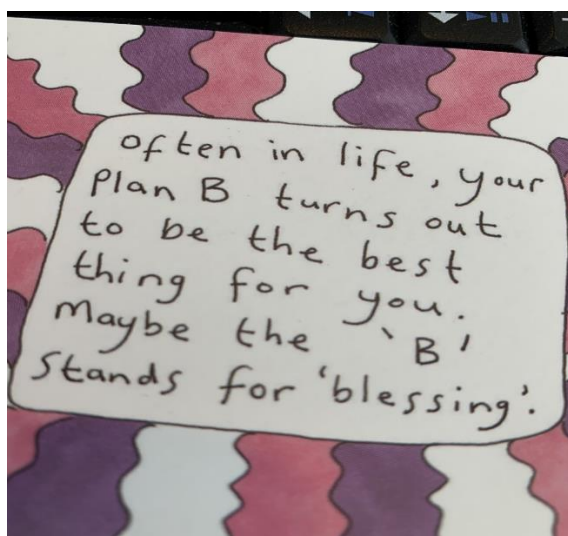 often in life, your
Plan B turns out
to be the best
thing for you.
Maybe the 'B'
stands for 'blessing'.